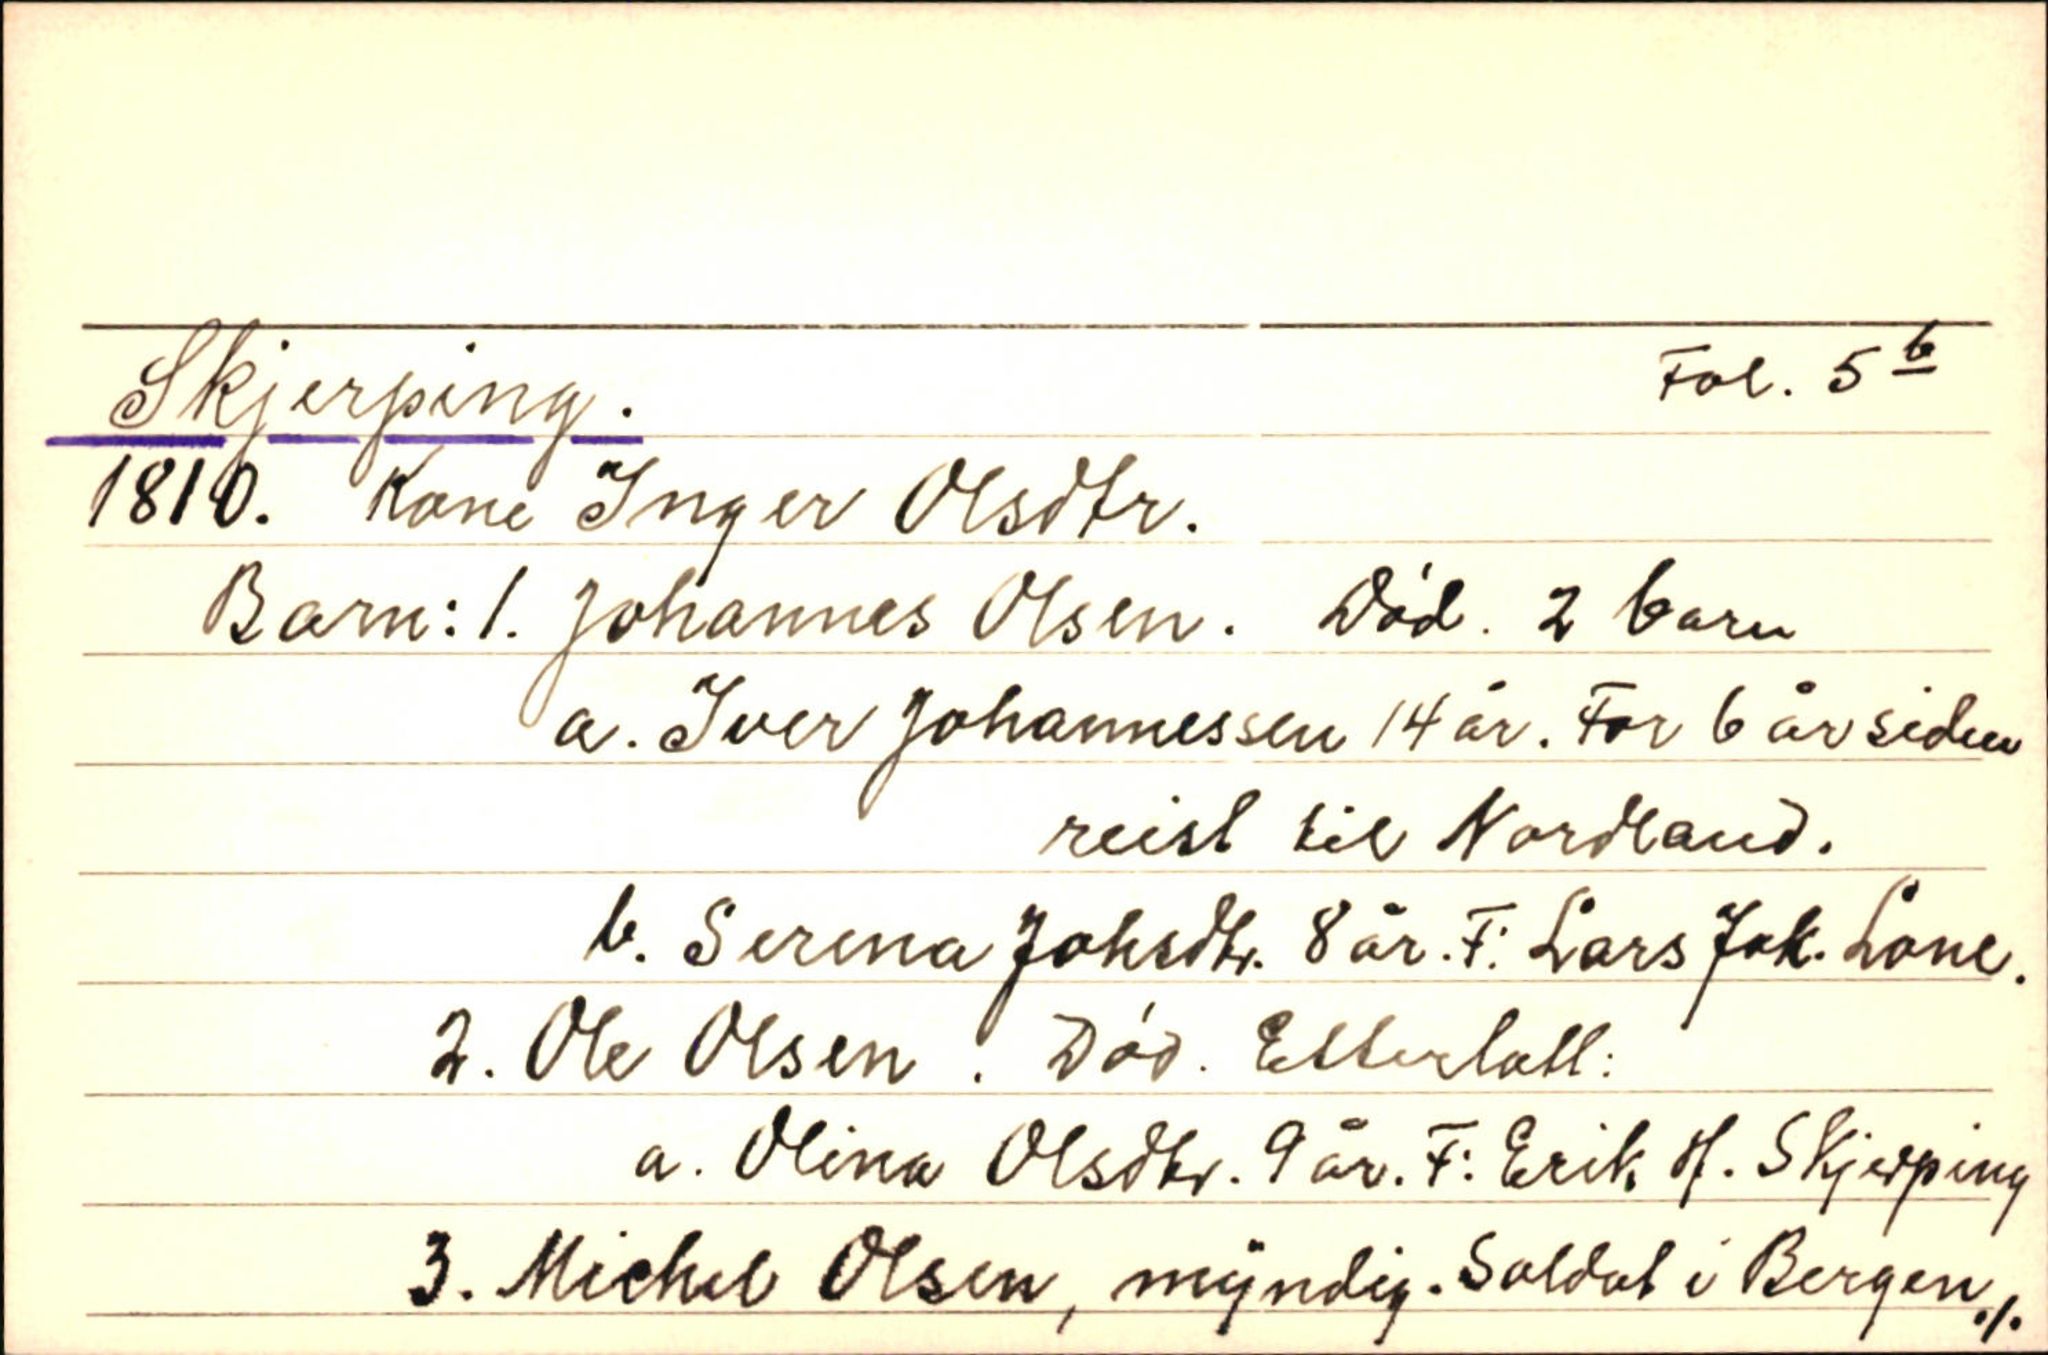 Skjerping. Fol. 5 b
1810. Kone Inger Olsdtr.
Barn: 1. Johannes Olsen. Død. 2 barn
a. Iver Johannessen 14 år. For 6 år siden
reist til Nordland.
b. Serena Johsdtr. 8 år. F: Lars Joh. Lone.
2. Ole Olsen. Død. Etterlatt:
a. Olina Olsdtr. 9 år. F: Erik H. Skjerping
3. Michel Olsen, mÿndig. Soldat i Bergen ./.